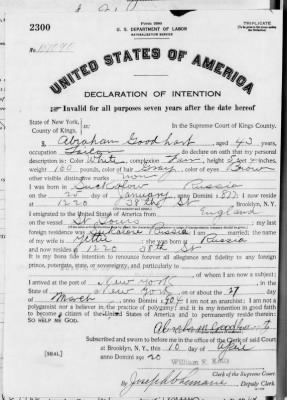 Form 2202
U. S. DEPARTMENT OF LABOR
NATURALIZATION SERVICE
TRIPLICATE
2300
UNITED STATES OF AMERICA
DECLARATION OF INTENTION
Invalid for all purposes seven years after the date hereof
State of New York,
County of Kings. ss:
In the Supreme Court of Kings County.
I, Abraham Goodhart, aged 43 years,
occupation Tailor, do declare on oath that my personal
description is: Color White, complexion Fair, height 5 feet inches,
weight pounds, color of hair Gray, color of eyes Brown
other visible distinctive marks none
I was born in Russia
on the day of January, anno Domini 1877; I now reside
at 1220 38th St, Brooklyn, N.Y.
I emigrated to the United States of America from England
on the vessel St Louis; my last
foreign residence was Russia; I am married; the name
of my wife is; she was born at Russia
and now resides at 1220 38th St
It is my bona fide intention to renounce forever all allegiance and fidelity to any foreign
prince, potentate, state, or sovereignty, and particularly to
of whom I am now a subject;
I arrived at the port of New York, in the
State of New York, on or about the 27 day
of March, anno Domini 1904; I am not an anarchist; I am not a
polygamist nor a believer in the practice of polygamy; and it is my intention in good faith
to become a citizen of the United States of America and to permanently reside therein:
SO HELP ME GOD.
Abraham Goodhart
Subscribed and sworn to before me in the office of the Clerk of said Court
at Brooklyn, N. Y., this 10 day of April
anno Domini 1920
[SEAL]
William E. Kelly
Clerk of the Supreme Court.
By Joseph, Deputy Clerk